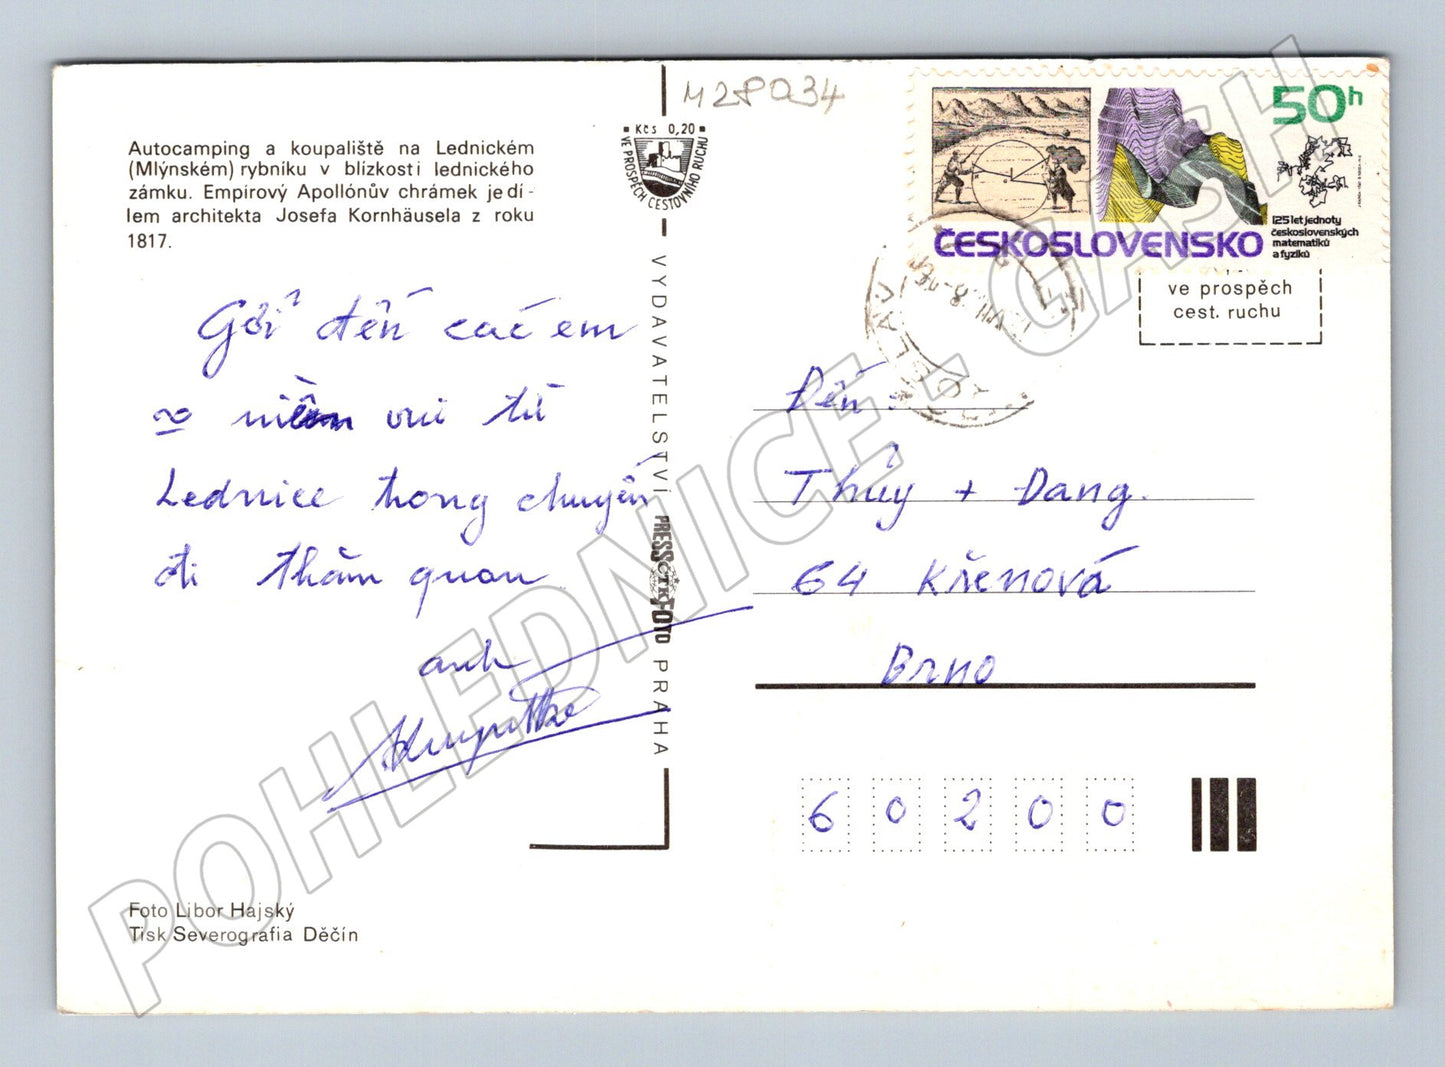 M28Q34
Autocamping a koupaliště na Lednickém
(Mlýnském) rybníku v blízkosti lednického
zámku. Empírový Apollónův chrámek je dí-
lem architekta Josefa Kornhäusela z roku
1817.
Kčs 0,20
VE PROSPĚCH CESTOVNÍHO RUCHU
50h
125 let jednoty
československých
matematiků
a fyziků
ČESKOSLOVENSKO
ve prospěch
cest. ruchu
Gởi đến các em
niềm vui từ
Lednice trong chuyến
đi thăm quan
anh
Đến:
Thủy + Dang.
64 Křenová
Brno
60200
VYDAVATELSTVÍ PRESSFOTO PRAHA
ČTK
Foto Libor Hajský
Tisk Severografia Děčín
POHLEDNICE - GASH